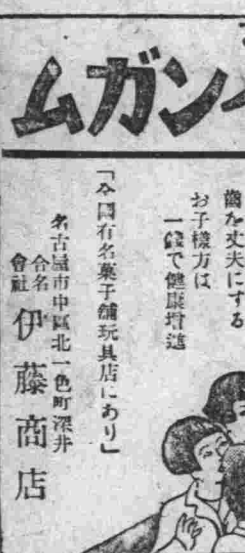 ンガム
歯を丈夫にする
お子様方は
一錢で健康増進
「全國有名菓子舗玩具店にあり」
名古屋市中區北一色町深井
合名
會社
伊藤商店